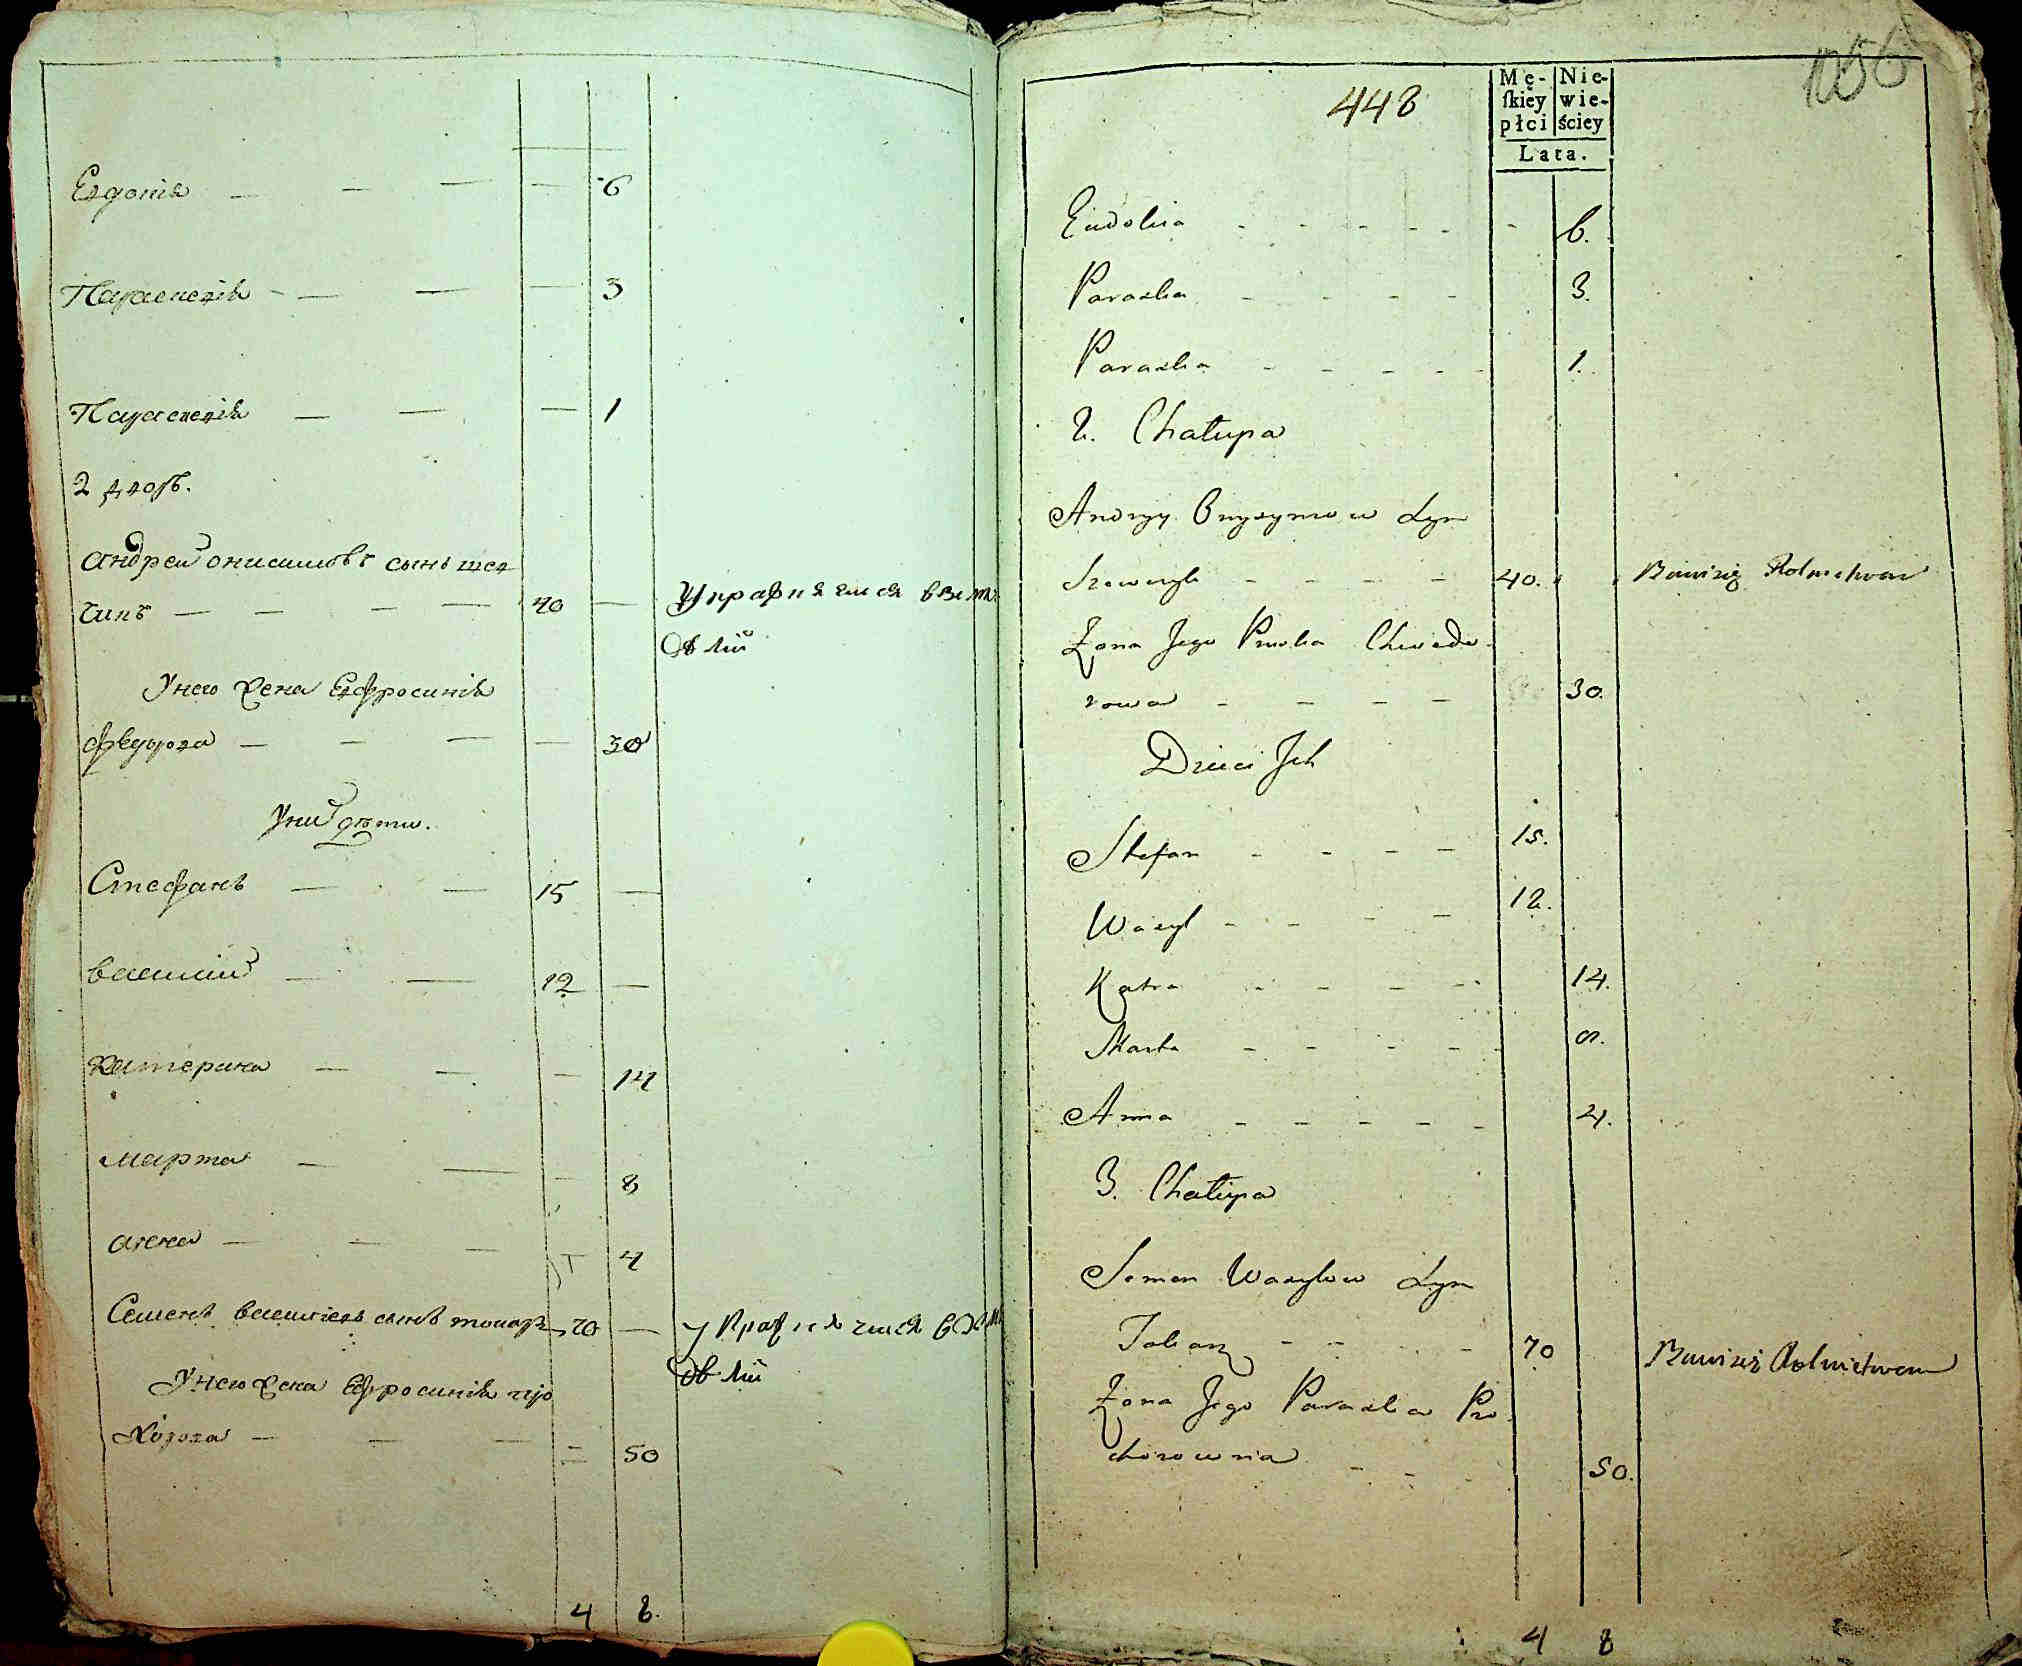 Евдокія — — — — 6
Параскевія — — — — 3
Параскевія — — — 1
2 дворъ.
Андрей Онисимовъ сынъ шев
чикъ — — — — 40 — Упражняется в зем
У него жена Евфросинія
федорова — — — — 30
У них дѣти.
Стефанъ — — 15 —
Василий — — 12 —
Катерина — — — 14
Марта — — — 8
Анна — — — 4
Семенъ Василіевъ сынъ токарь 70 — Упражняется в зем
У него жена Евфросинія про
хорова — — — — 50
4 8.
448
1056
Mę-
skiey
płci
Nie-
wie-
ściey
Lata.
Eudokia - - - - - - 6.
Paraska - - - - - 3.
Paraska - - - - - 1.
2. Chałupa
Andrzy Onyzymow Syn
Szewczyk - - - - 40. Bawi się Rolnictwem
Żona Jego Chwedo-
rowa - - - - 30.
Dzieci Jch
Stefan - - - - 15.
Wasyl - - - - 12.
Katra - - - - - 14.
Marta - - - - - 8.
Anna - - - - - 4.
3. Chałupa
Semen Wasylow Syn
Tokarz - - - - 70 Bawi się Rolnictwem
Żona Jego Paraska Pro-
chorowna - - - 50.
4 8